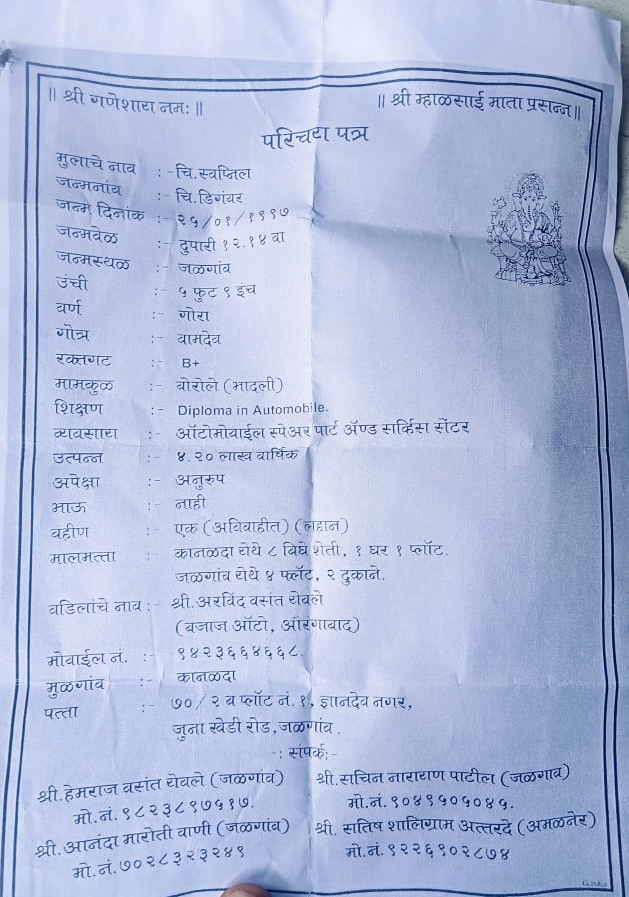 || श्री गणेशाय नमः || || श्री म्हाळसाई माता प्रसन्न ||
परिचय पत्र
मुलाचे नाव :- चि.स्वप्निल
जन्मनांव :- चि.डिगंबर
जन्म दिनांक :- २५/०१/१९९७
जन्मवेळ :- दुपारी १२.१४ वा
जन्मस्थळ :- जळगांव
उंची :- ५ फुट १ इंच
वर्ण :- गोरा
गोत्र :- वामदेव
रक्तगट :- B+
मामकुळ :- बोरोले (भादली)
शिक्षण :- Diploma in Automobile.
व्यवसाय :- ऑटोमोबाईल स्पेअर पार्ट ॲण्ड सर्व्हिस सेंटर
उत्पन्न :- ४.२० लाख वार्षिक
अपेक्षा :- अनुरुप
भाऊ :- नाही
बहीण :- एक (अविवाहीत) (लहान)
मालमत्ता :- कानळदा येथे ८ बिघे शेती, १ घर १ प्लॉट.
जळगांव येथे ४ फ्लॅट, २ दुकाने.
वडिलांचे नाव :- श्री.अरविंद वसंत येवले
(बजाज ऑटो, औरंगाबाद)
मोबाईल नं. :- ९४२३६६४६६८.
मुळगांव :- कानळदा
पत्ता :- ७०/२ ब प्लॉट नं. १, ज्ञानदेव नगर,
जुना खेडी रोड, जळगांव.
-: संपर्क:-
श्री.हेमराज वसंत येवले (जळगांव) श्री.सचिन नारायण पाटील (जळगाव)
मो.नं. ९८२३८९७५१७. मो.नं. ९०४९५०५०४५.
श्री.आनंदा मारोती वाणी (जळगांव) श्री. सतिष शालिग्राम अत्तरदे (अमळनेर)
मो.नं. ७०२८३२३२४९ मो.नं. ९२२६९०२८७४